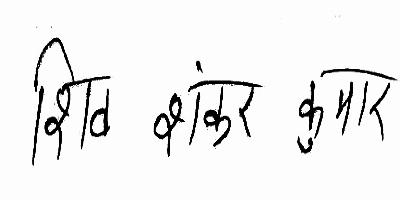 शिव शंकर कुमार